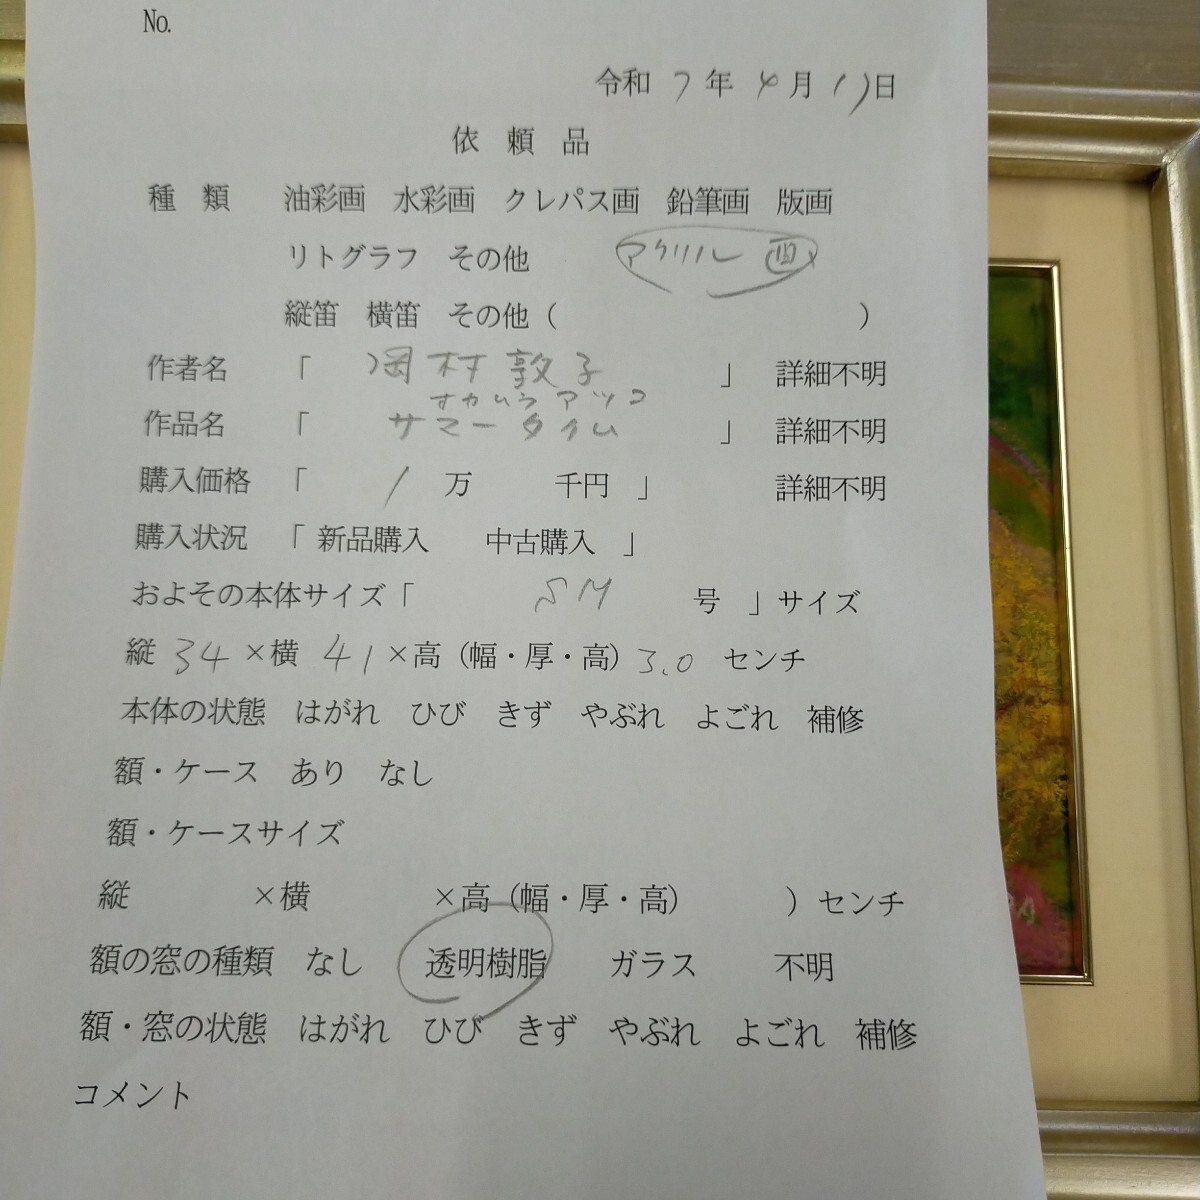 No.
令和 7 年 4 月 17 日
依 頼 品
種 類 油彩画 水彩画 クレパス画 鉛筆画 版画
リトグラフ その他 アクリル画
縦笛 横笛 その他（ ）
作者名 「 岡村敦子 」 詳細不明
オカムラアツコ
作品名 「 サマータイム 」 詳細不明
購入価格 「 1 万 千円 」 詳細不明
購入状況 「 新品購入 中古購入 」
およその本体サイズ「 SM 号 」サイズ
縦 34 ×横 41 ×高（幅・厚・高）3.0 センチ
本体の状態 はがれ ひび きず やぶれ よごれ 補修
額・ケース あり なし
額・ケースサイズ
縦 ×横 ×高（幅・厚・高） ）センチ
額の窓の種類 なし 透明樹脂 ガラス 不明
額・窓の状態 はがれ ひび きず やぶれ よごれ 補修
コメント